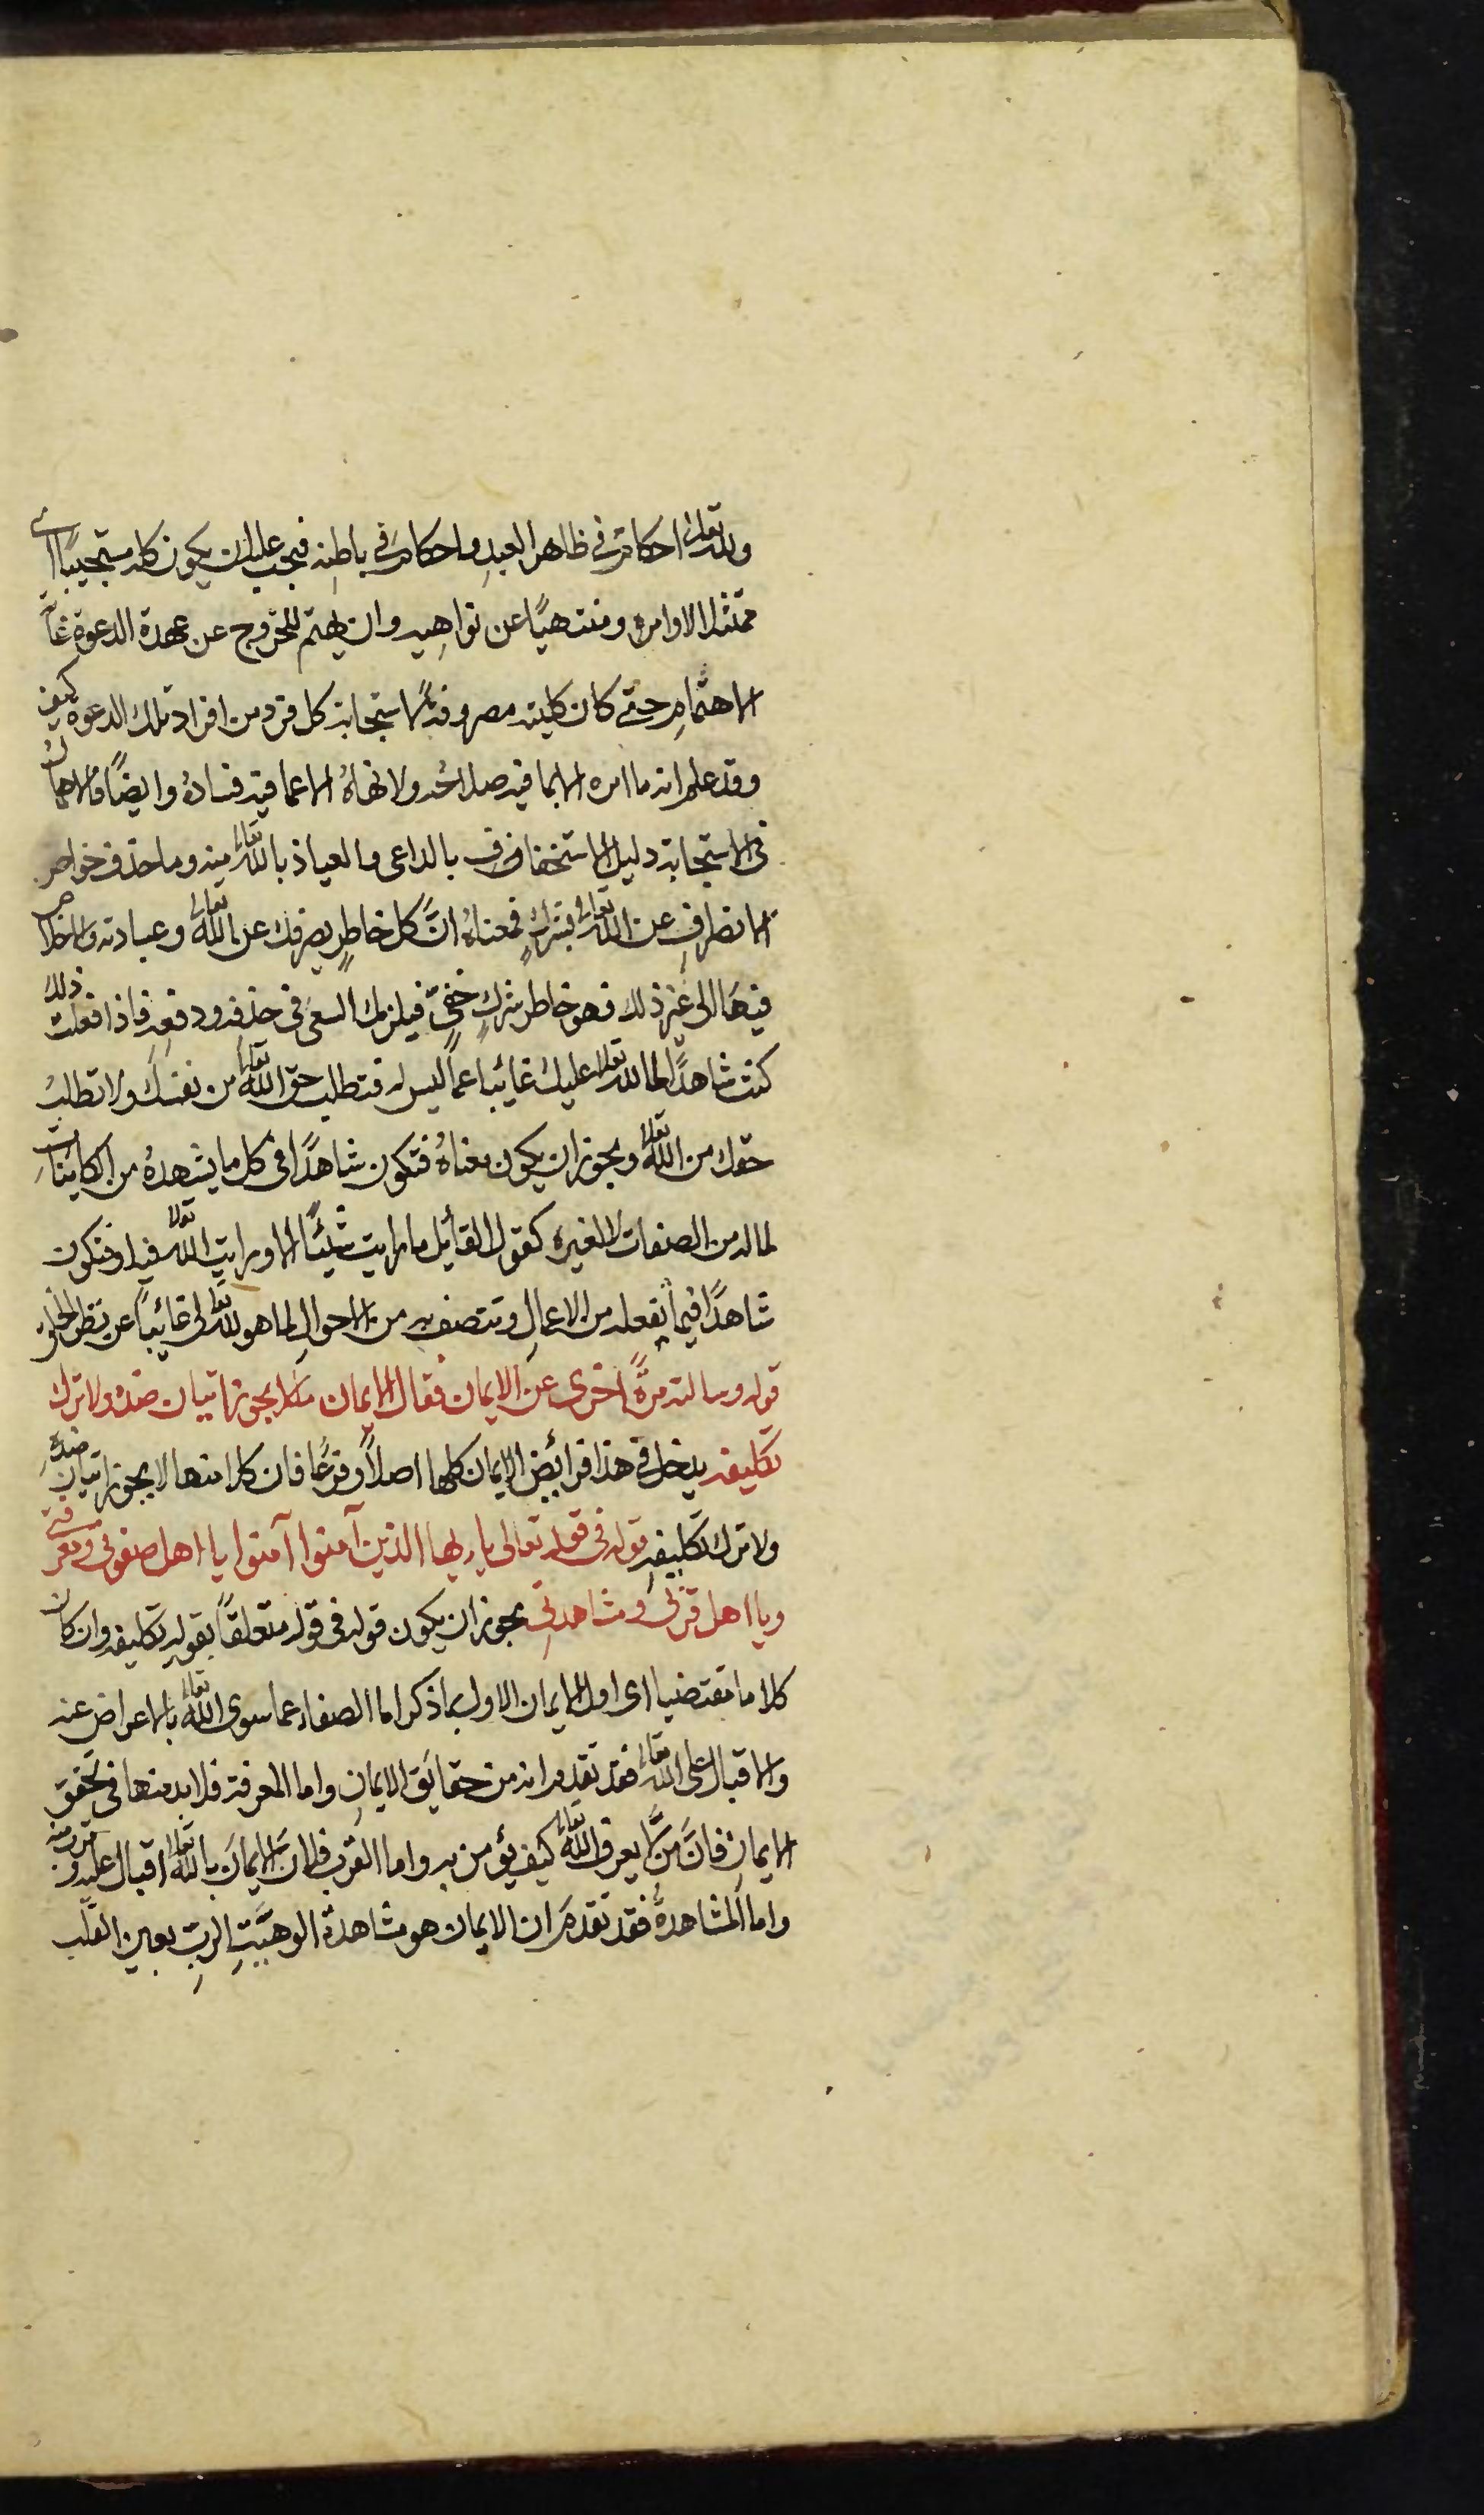 ولله تعالى احكام في ظاهر العبد واحكام في باطنه فيجب عليك ان يكون كله مستجيبًا اي
ممتثلا لاوامره ومنتهيًا عن نواهيه وان يهتم للخروج عن عهدة الدعوة غاية
الاهتمامِ حتى كان كليته مصروفة لاستجابة كل فرد من افراد تلك الدعوة كيف
وقد علم انه ما امره الا بما فيه صلاحُه ولا نهاهُ الا عما فيه فسادهُ وايضًا فالاهمال
في الاستجابة دليل الاستخفاف بالداعى والعياذ بالله تعالى منه وما حذف خواطر
الانصرافِ عن الله تعالى بشركٍ فمعناهُ انَّ كل خاطرٍ يصرفك عن الله تعالى وعبادته والاخلاص
فيهَا الى غير ذلك فهو خاطر شركٍ خفىٍّ فيلزمك السعى فى حذفه ودفعِه فاذا فعلت ذلك
كنت شاهدًا لما لله تعالى عليك غائبا عما ليس له فتطلب حق الله تعالى من نفسك ولا تطلب
حقك من الله تعالى ويجوز ان يكون معناهُ فتكون شاهدًا فى كل ما يشهدهُ من الكائنات
لما له من الصفات لا لغيره كقول القائل ما رايت شيئًا الا ورايت الله تعالى فيه او فتكون
شاهدًا فيما تفعله من الاعمالِ وتتصف به من الاحوالِ لما هو لله تعالى غائبًا عن حظ
قوله وسالته مرّةً اخرى عن الايمان فقال الايمان ما لا يجوز اتيان ضده ولا ترك
تكليفه يدخل فى هذا فرائض الايمان كلها اصلاً وفرعًا فان كلا منها لا يجوز اتيان ضدّه
ولا ترك تكليفهِ قوله فى قوله تعالى يا ايها الذين آمنوا آمنوا يا اهل صفوتى ومعرفتى
ويا اهل قربى ومشاهدتى يجوز ان يكون قوله فى قوله متعلقًا بقوله تكليفه وان كان
كلاما مقتضيا اى اول الايمان الاول بما ذكر اما الصفاء عما سوى الله تعالى بالاعراض عنه
والاقبال على الله تعالى فقد تقدم انه من حقايق الايمانِ واما المعرفة فلا بد منها فى تحقق
الايمانِ فانَّ مَن لا يعرف الله تعالى كيف يؤمن به واما القرب فلان الايمانَ بالله تعالى اقبال عليه وقرب منه
واما المشاهدةُ فقد تقدمَ ان الايمان هو مشاهدة الوهيّتِ الربِ بعين القلب